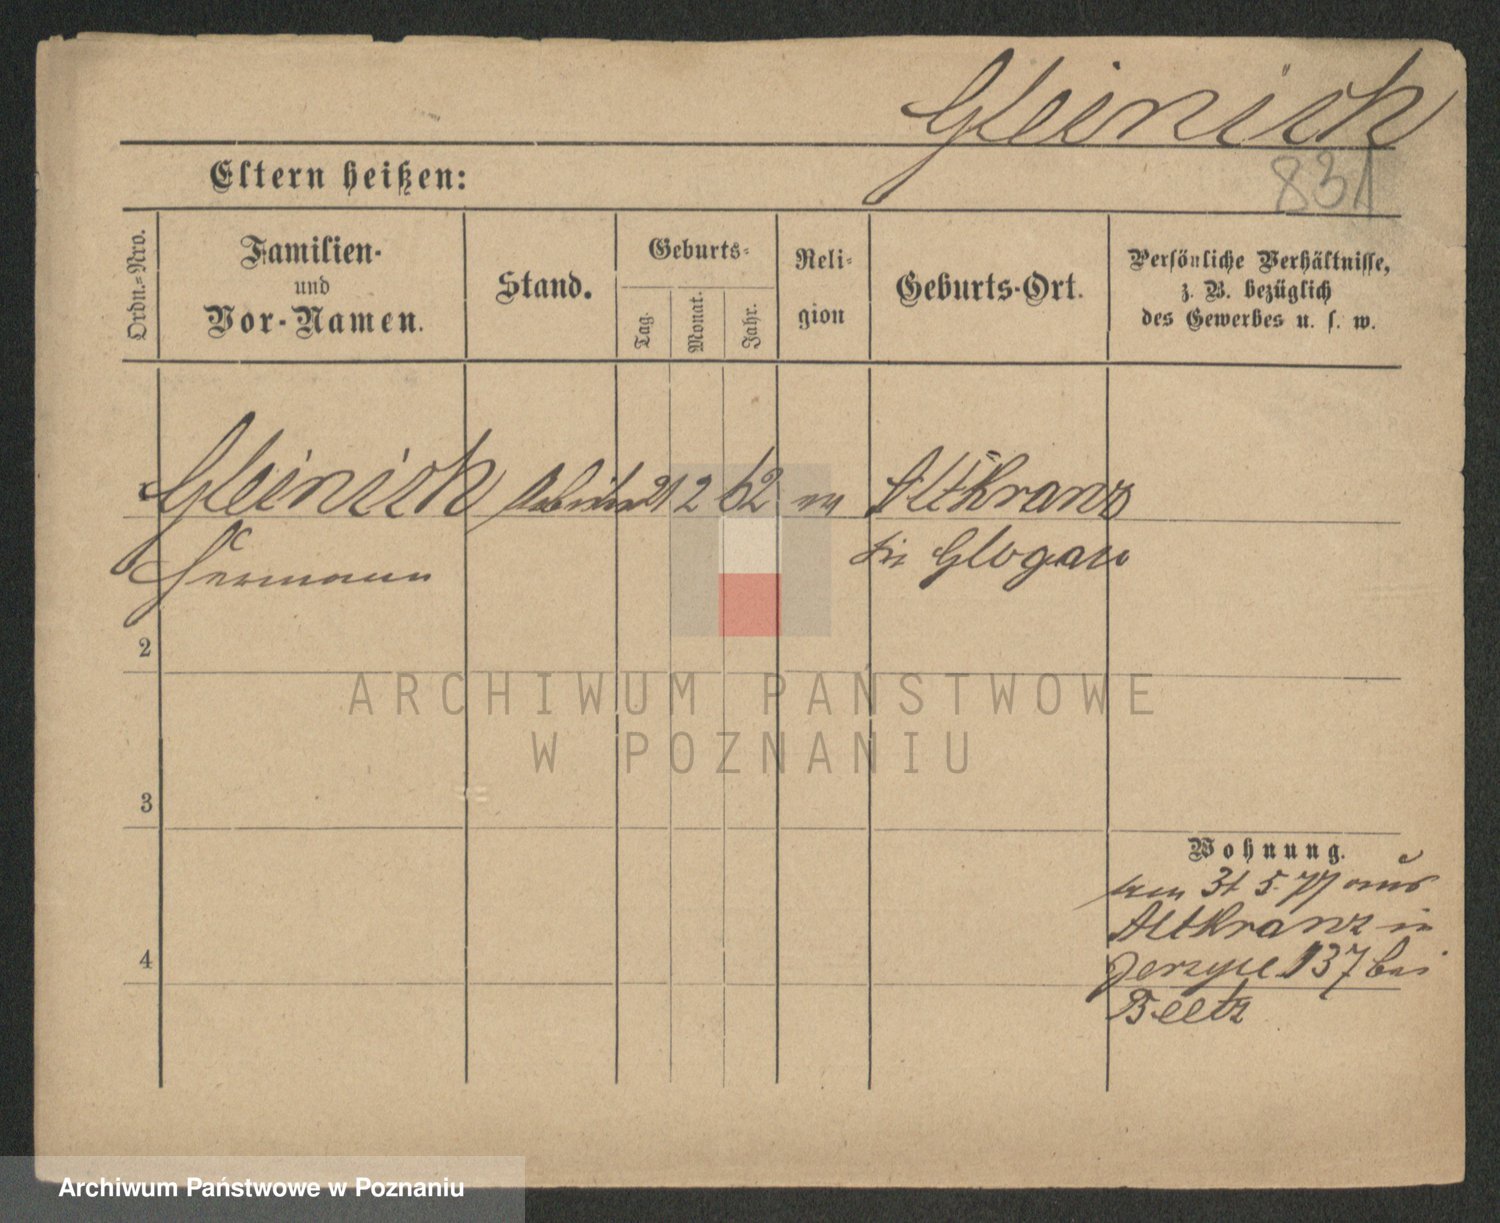 Gleinich
831
Eltern heißen:
Ordn.-Nro.
Familien-
und
Vor-Namen.
Stand.
Geburts-
Tag.
Monat.
Jahr.
Reli-
gion
Geburts-Ort.
Persönliche Verhältnisse,
z. B. bezüglich
des Gewerbes u. s. w.
Gleinich Arbeiter 21 2 62 Altkranz
Hermann
Glogau
2
3
4
Wohnung.
31 5 77 aus
Altkranz in
Jerzyce 137 bei
Beetz
ARCHIWUM PAŃSTWOWE
W POZNANIU
Archiwum Państwowe w Poznaniu